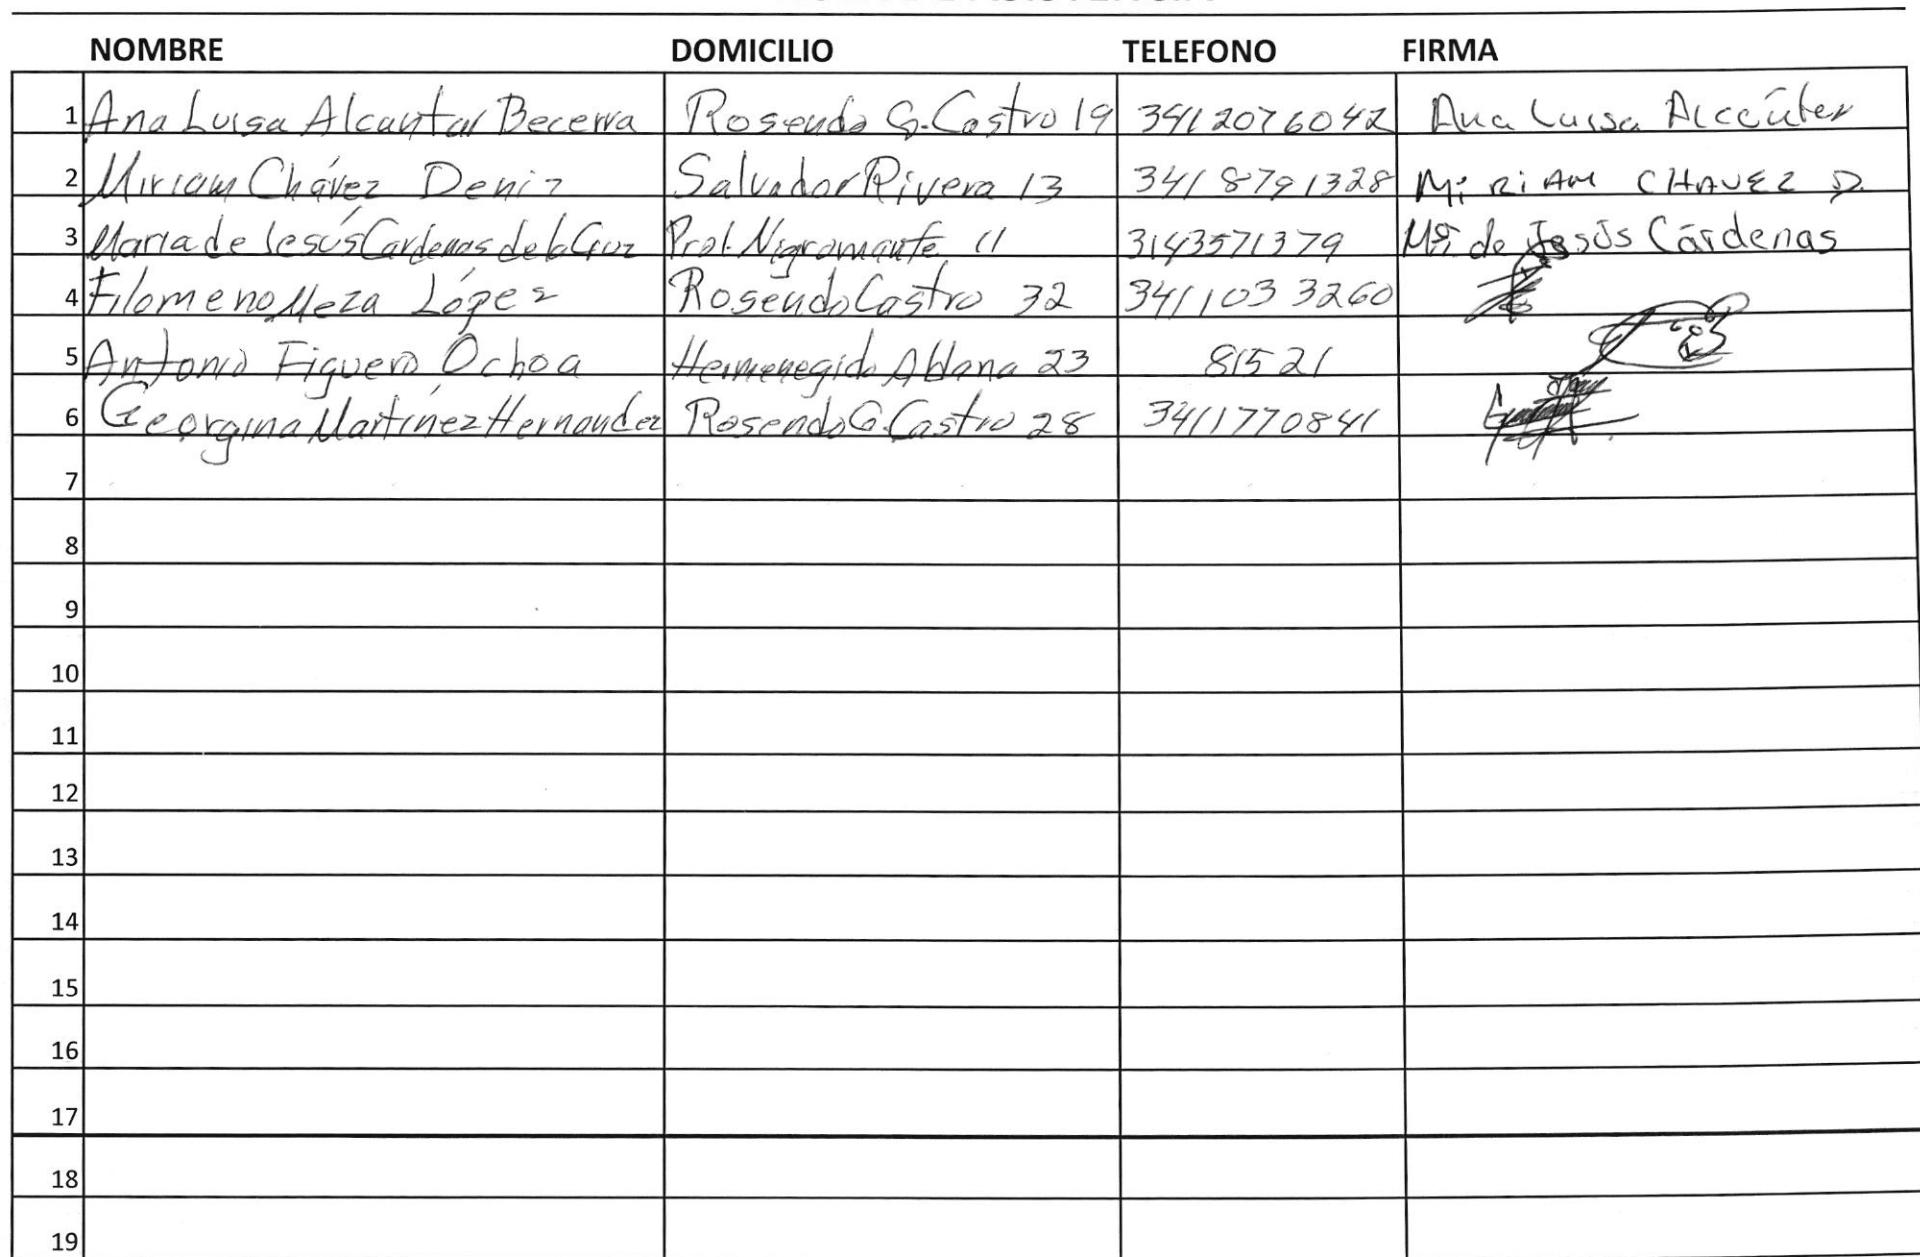 NOMBRE DOMICILIO TELEFONO FIRMA
1 Ana Luisa Alcantar Becerra Rosendo G. Castro 19 3412076042 Ana Luisa
2 Miriam Chávez Deniz Salvador Rivera 13 3418791328 MiRiAM CHAVEZ D.
3 Maria de Jesús Cardenas de la Cruz Prol. Nigromante 11 3143571379 Mª de Jesús Cárdenas
4 Filomeno Meza López Rosendo Castro 32 341103 3260
5 Antonio Figuero Ochoa Hermenegido Aldana 23 81521
6 Georgina Martínez Hernandez Rosendo G. Castro 28 3411770841
7
8
9
10
11
12
13
14
15
16
17
18
19